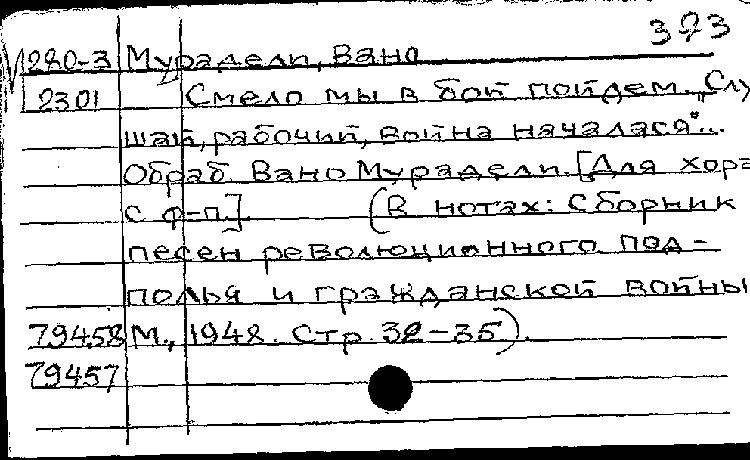 373
М280-3 Мурадели, Вано
2301 Смело мы в бой пойдем. „Слу
шай, рабочий, война началася"...
Обраб. Вано Мурадели. [Для хора
с ф-п.]. (В нотах: Сборник
песен революционного под-
полья и гражданской войны
79458 М., 1948. Стр. 32-35).
79457